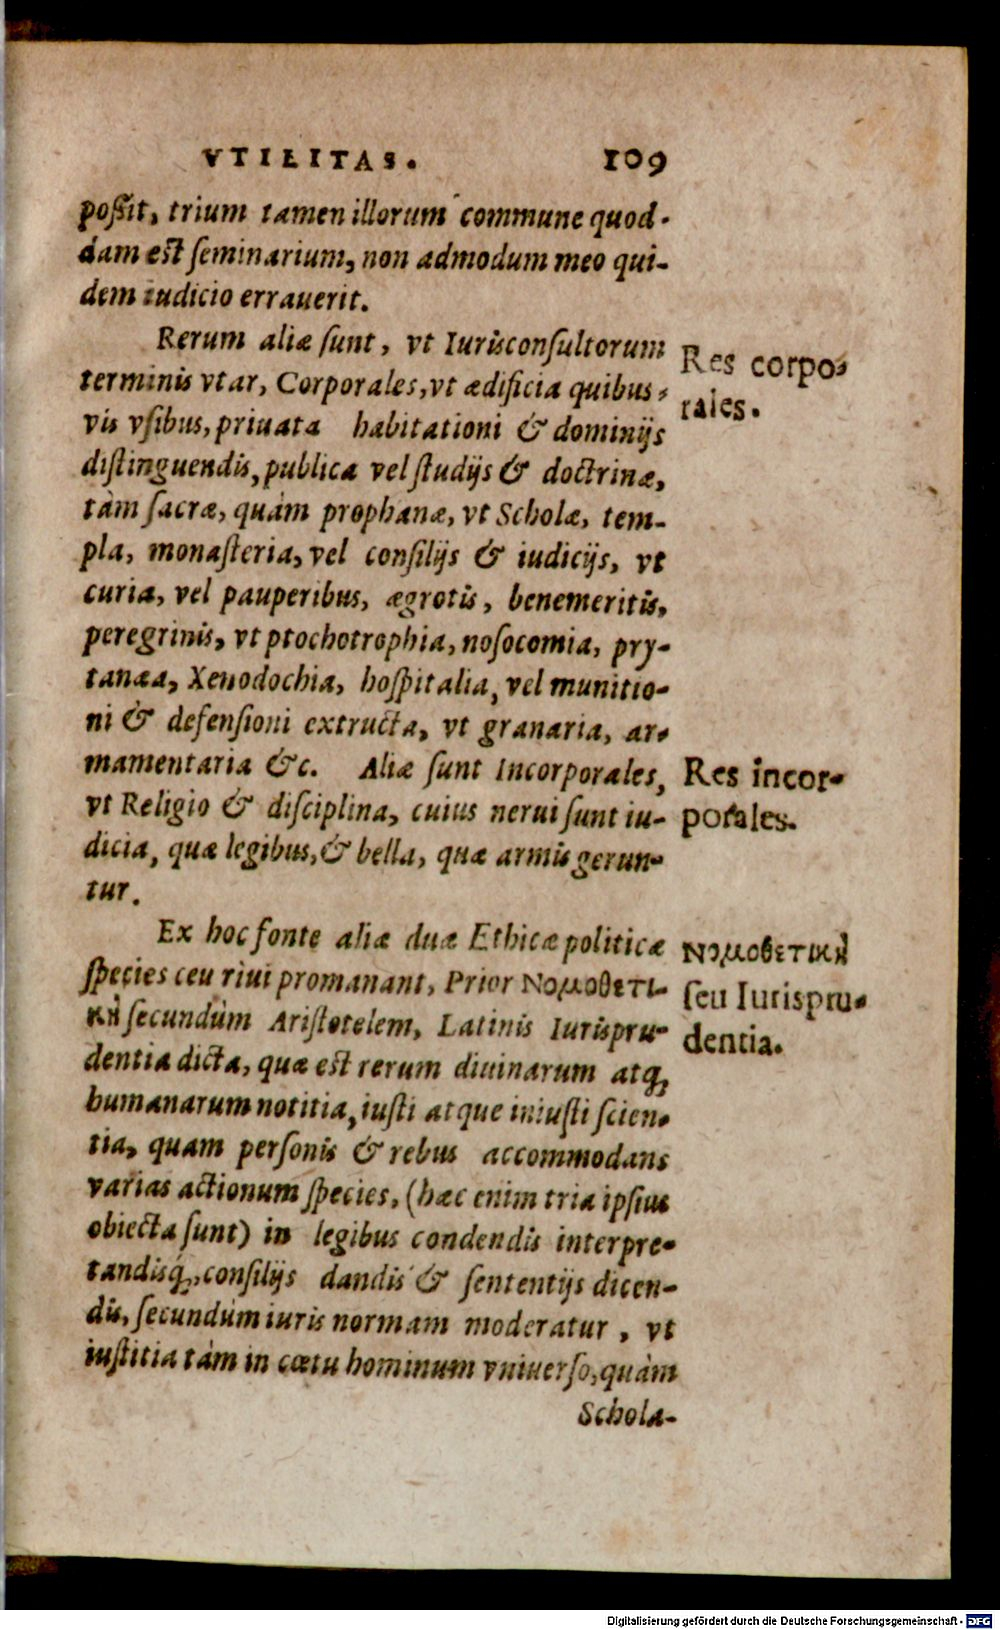 VTILITAS. 109
poſsit, trium tamen illorum commune quod-
dam est ſeminarium, non admodum meo qui-
dem iudicio errauerit.
Rerum aliæ ſunt, vt Iurisconſultorum
terminis vtar, Corporales, vt ædificia quibus-
vis vſibus, priuata habitationi & dominijs
diſtinguendis, publica vel ſtudijs & doctrinæ,
tàm ſacræ, quàm prophanæ, vt Scholæ, tem-
pla, monaſteria, vel conſilijs & iudicijs, vt
curia, vel pauperibus, ægrotis, benemeritis,
peregrinis, vt ptochotrophia, noſocomia, pry-
tanæa, Xenodochia, hoſpitalia, vel munitio-
ni & defenſioni extructa, vt granaria, ar-
mamentaria &c. Aliæ ſunt Incorporales,
vt Religio & diſciplina, cuius nerui ſunt iu-
dicia, quæ legibus, & bella, quæ armis gerun-
tur.
Ex hoc fonte aliæ duæ Ethicæ politicæ
ſpecies ceu riui promanant, Prior Νομοθετι-
κὴ ſecundùm Ariſtotelem, Latinis Iuriſpru-
dentia dicta, quæ est rerum diuinarum atq;
humanarum notitia, iuſti atque iniuſti ſcien-
tia, quam perſonis & rebus accommodans
varias actionum ſpecies, (hæc enim tria ipſius
obiecta ſunt) in legibus condendis interpre-
tandisq́;, conſilijs dandis & ſententijs dicen-
dis, ſecundùm iuris normam moderatur, vt
iuſtitia tàm in cœtu hominum vniuerſo, quàm
Schola-
Res corpo-
rales.
Res incor-
porales.
Νομοθετικὴ
ſeu Iuriſpru-
dentia.
Digitalisierung gefördert durch die Deutsche Forschungsgemeinschaft - DFG